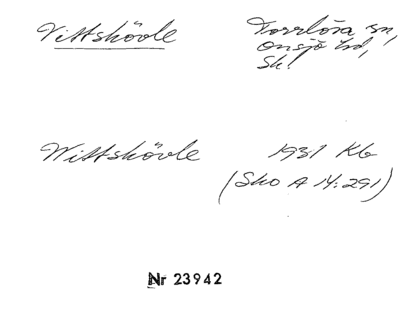 Vittskövle
Torrlösa sn,
Onsjö hd,
Sk.
Wittskövle
1931 Kb
(Sko A 14:291)
Nr 23942